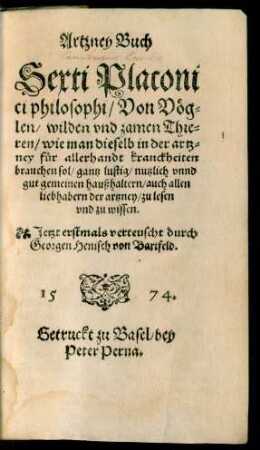 Artzney Buch
Sexti Placoni
ci philosophi / Von Vög-
len / wilden vnd zamen Thie-
ren / wie man dieselb in der artz-
ney für allerhandt kranckheiten
brauchen sol / gantz lustig / nutzlich vnnd
gut gemeinen haußhaltern / auch allen
liebhabern der artzney / zu lesen
vnd zu wissen.
Jetzt erstmals verteuscht durch
Georgen Henisch von Bartfeld.
15 74.
Getruckt zu Basel / bey
Peter Perna.